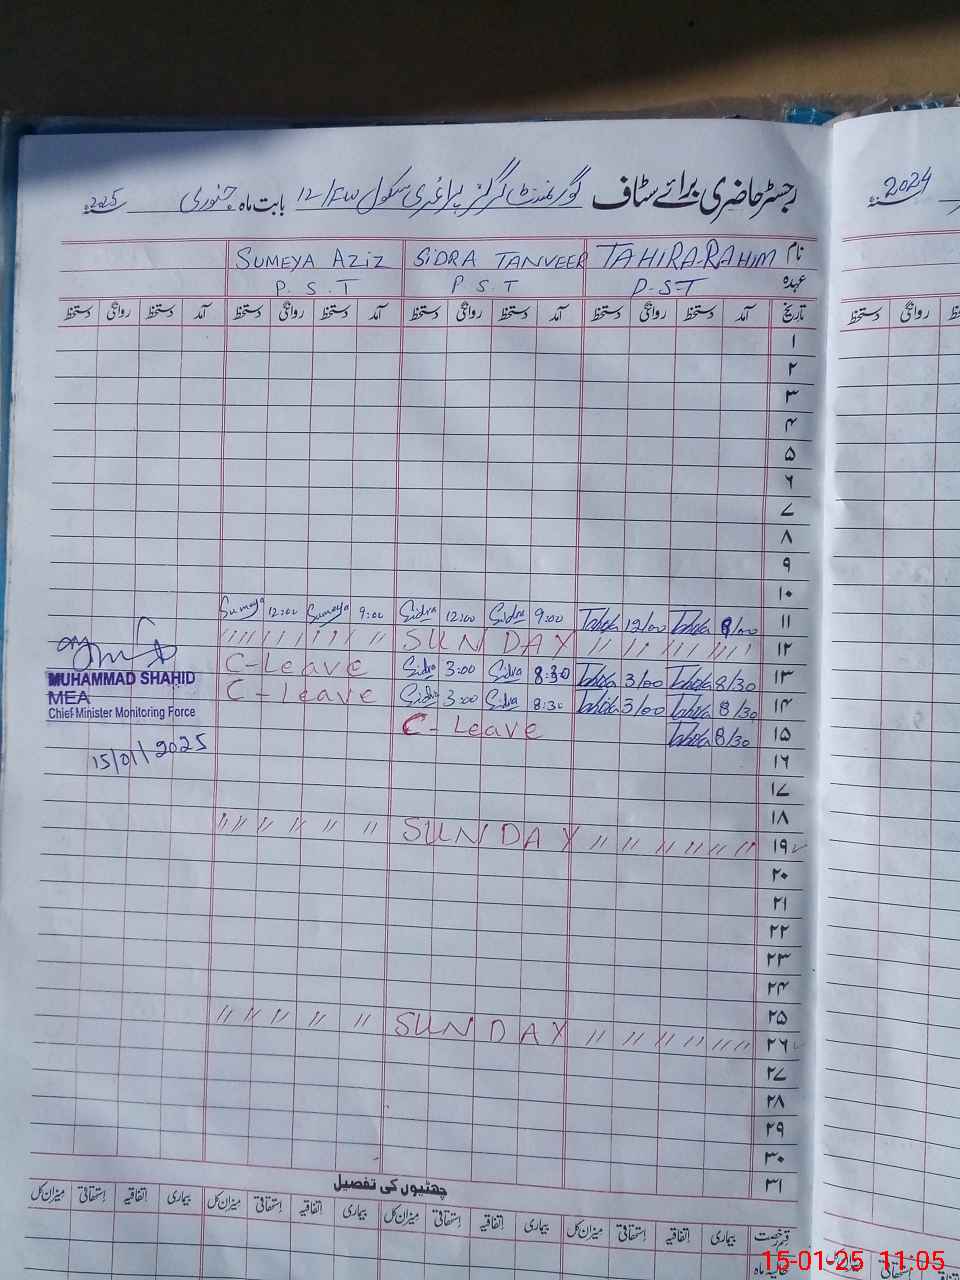 رجسٹر حاضری برائے سٹاف گورنمنٹ گرلز پرائمری سکول 12/FW بابت ماہ جنوری سنہ 2025
نام TAHIRA RAHIM SIDRA TANVEER SUMEYA AZIZ
عہدہ P-ST P S.T P.S.T
تاریخ آمد دستخط روانگی دستخط آمد دستخط روانگی دستخط آمد دستخط روانگی دستخط آمد دستخط روانگی دستخط
۱
۲
۳
۴
۵
۶
۷
۸
۹
۱۰
۱۱ 8/00 Tahira 12/00 Tahira 9:00 Sidra 12:00 Sidra 9:00 Sumeya 12:00 Sumeya
۱۲ SUNDAY
۱۳ 8/30 Tahira 3/00 Tahira 8:30 Sidra 3:00 Sidra C-Leave
۱۴ 8/30 Tahira 3/00 Tahira 8:30 Sidra 3:00 Sidra C-Leave
۱۵ 8/30 Tahira C-Leave
۱۶
۱۷
۱۸
۱۹ SUNDAY
۲۰
۲۱
۲۲
۲۳
۲۴
۲۵
۲۶ SUNDAY
۲۷
۲۸
۲۹
۳۰
۳۱
MUHAMMAD SHAHID
MEA
Chief Minister Monitoring Force
15/01/2025
چھٹیوں کی تفصیل
قسم رخصت بیماری اتفاقیہ استحقاقی میزان کل بیماری اتفاقیہ استحقاقی میزان کل بیماری اتفاقیہ استحقاقی میزان کل بیماری اتفاقیہ استحقاقی میزان کل
سنہ 2024
روانگی دستخط
15-01-25 11:05